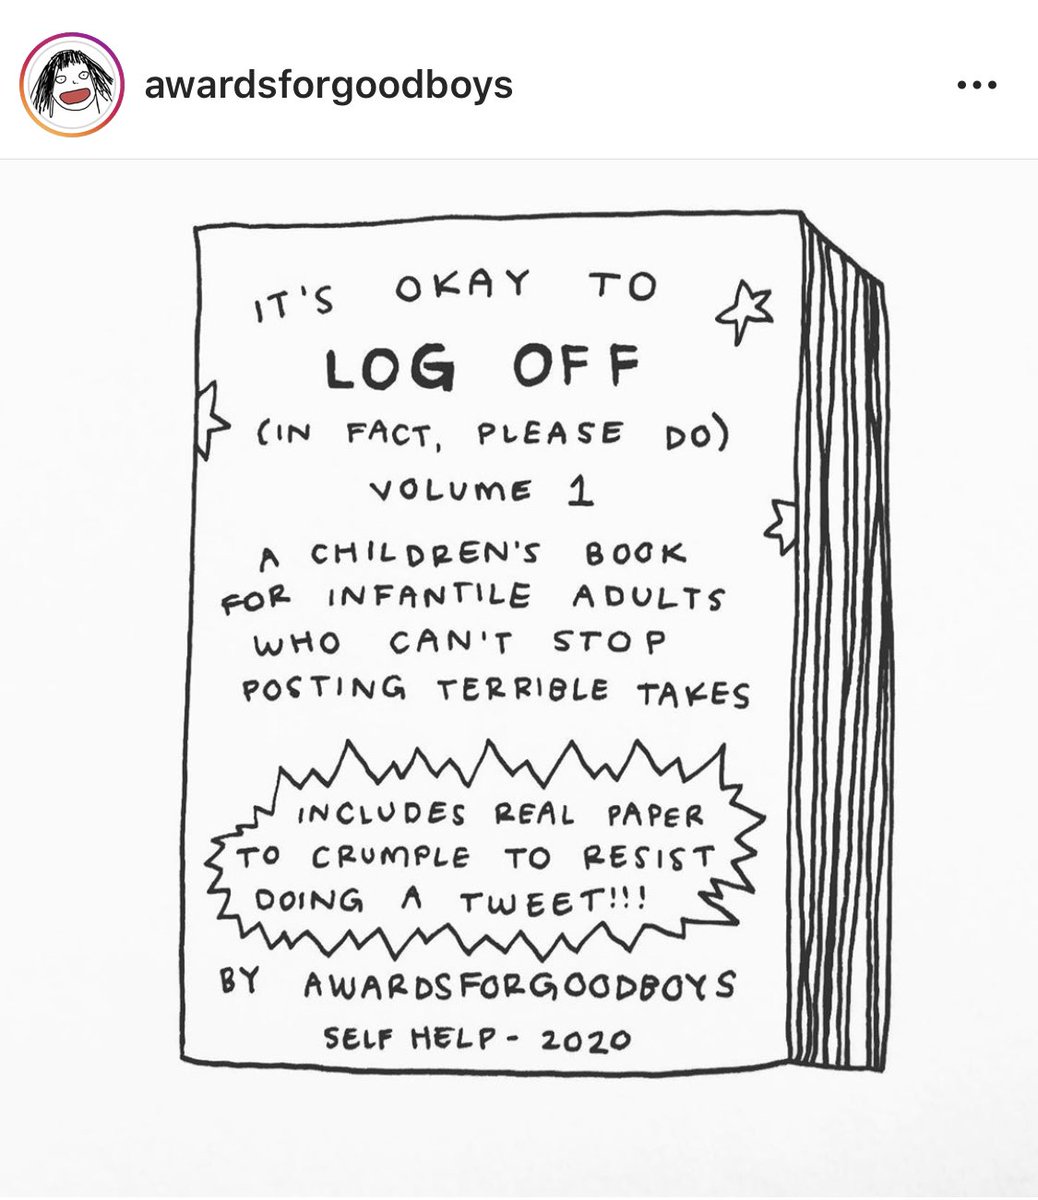 awardsforgoodboys
IT'S OKAY TO
LOG OFF
(IN FACT, PLEASE DO)
VOLUME 1
A CHILDREN'S BOOK
FOR INFANTILE ADULTS
WHO CAN'T STOP
POSTING TERRIBLE TAKES
INCLUDES REAL PAPER
TO CRUMPLE TO RESIST
DOING A TWEET!!!
BY AWARDSFORGOODBOYS
SELF HELP - 2020